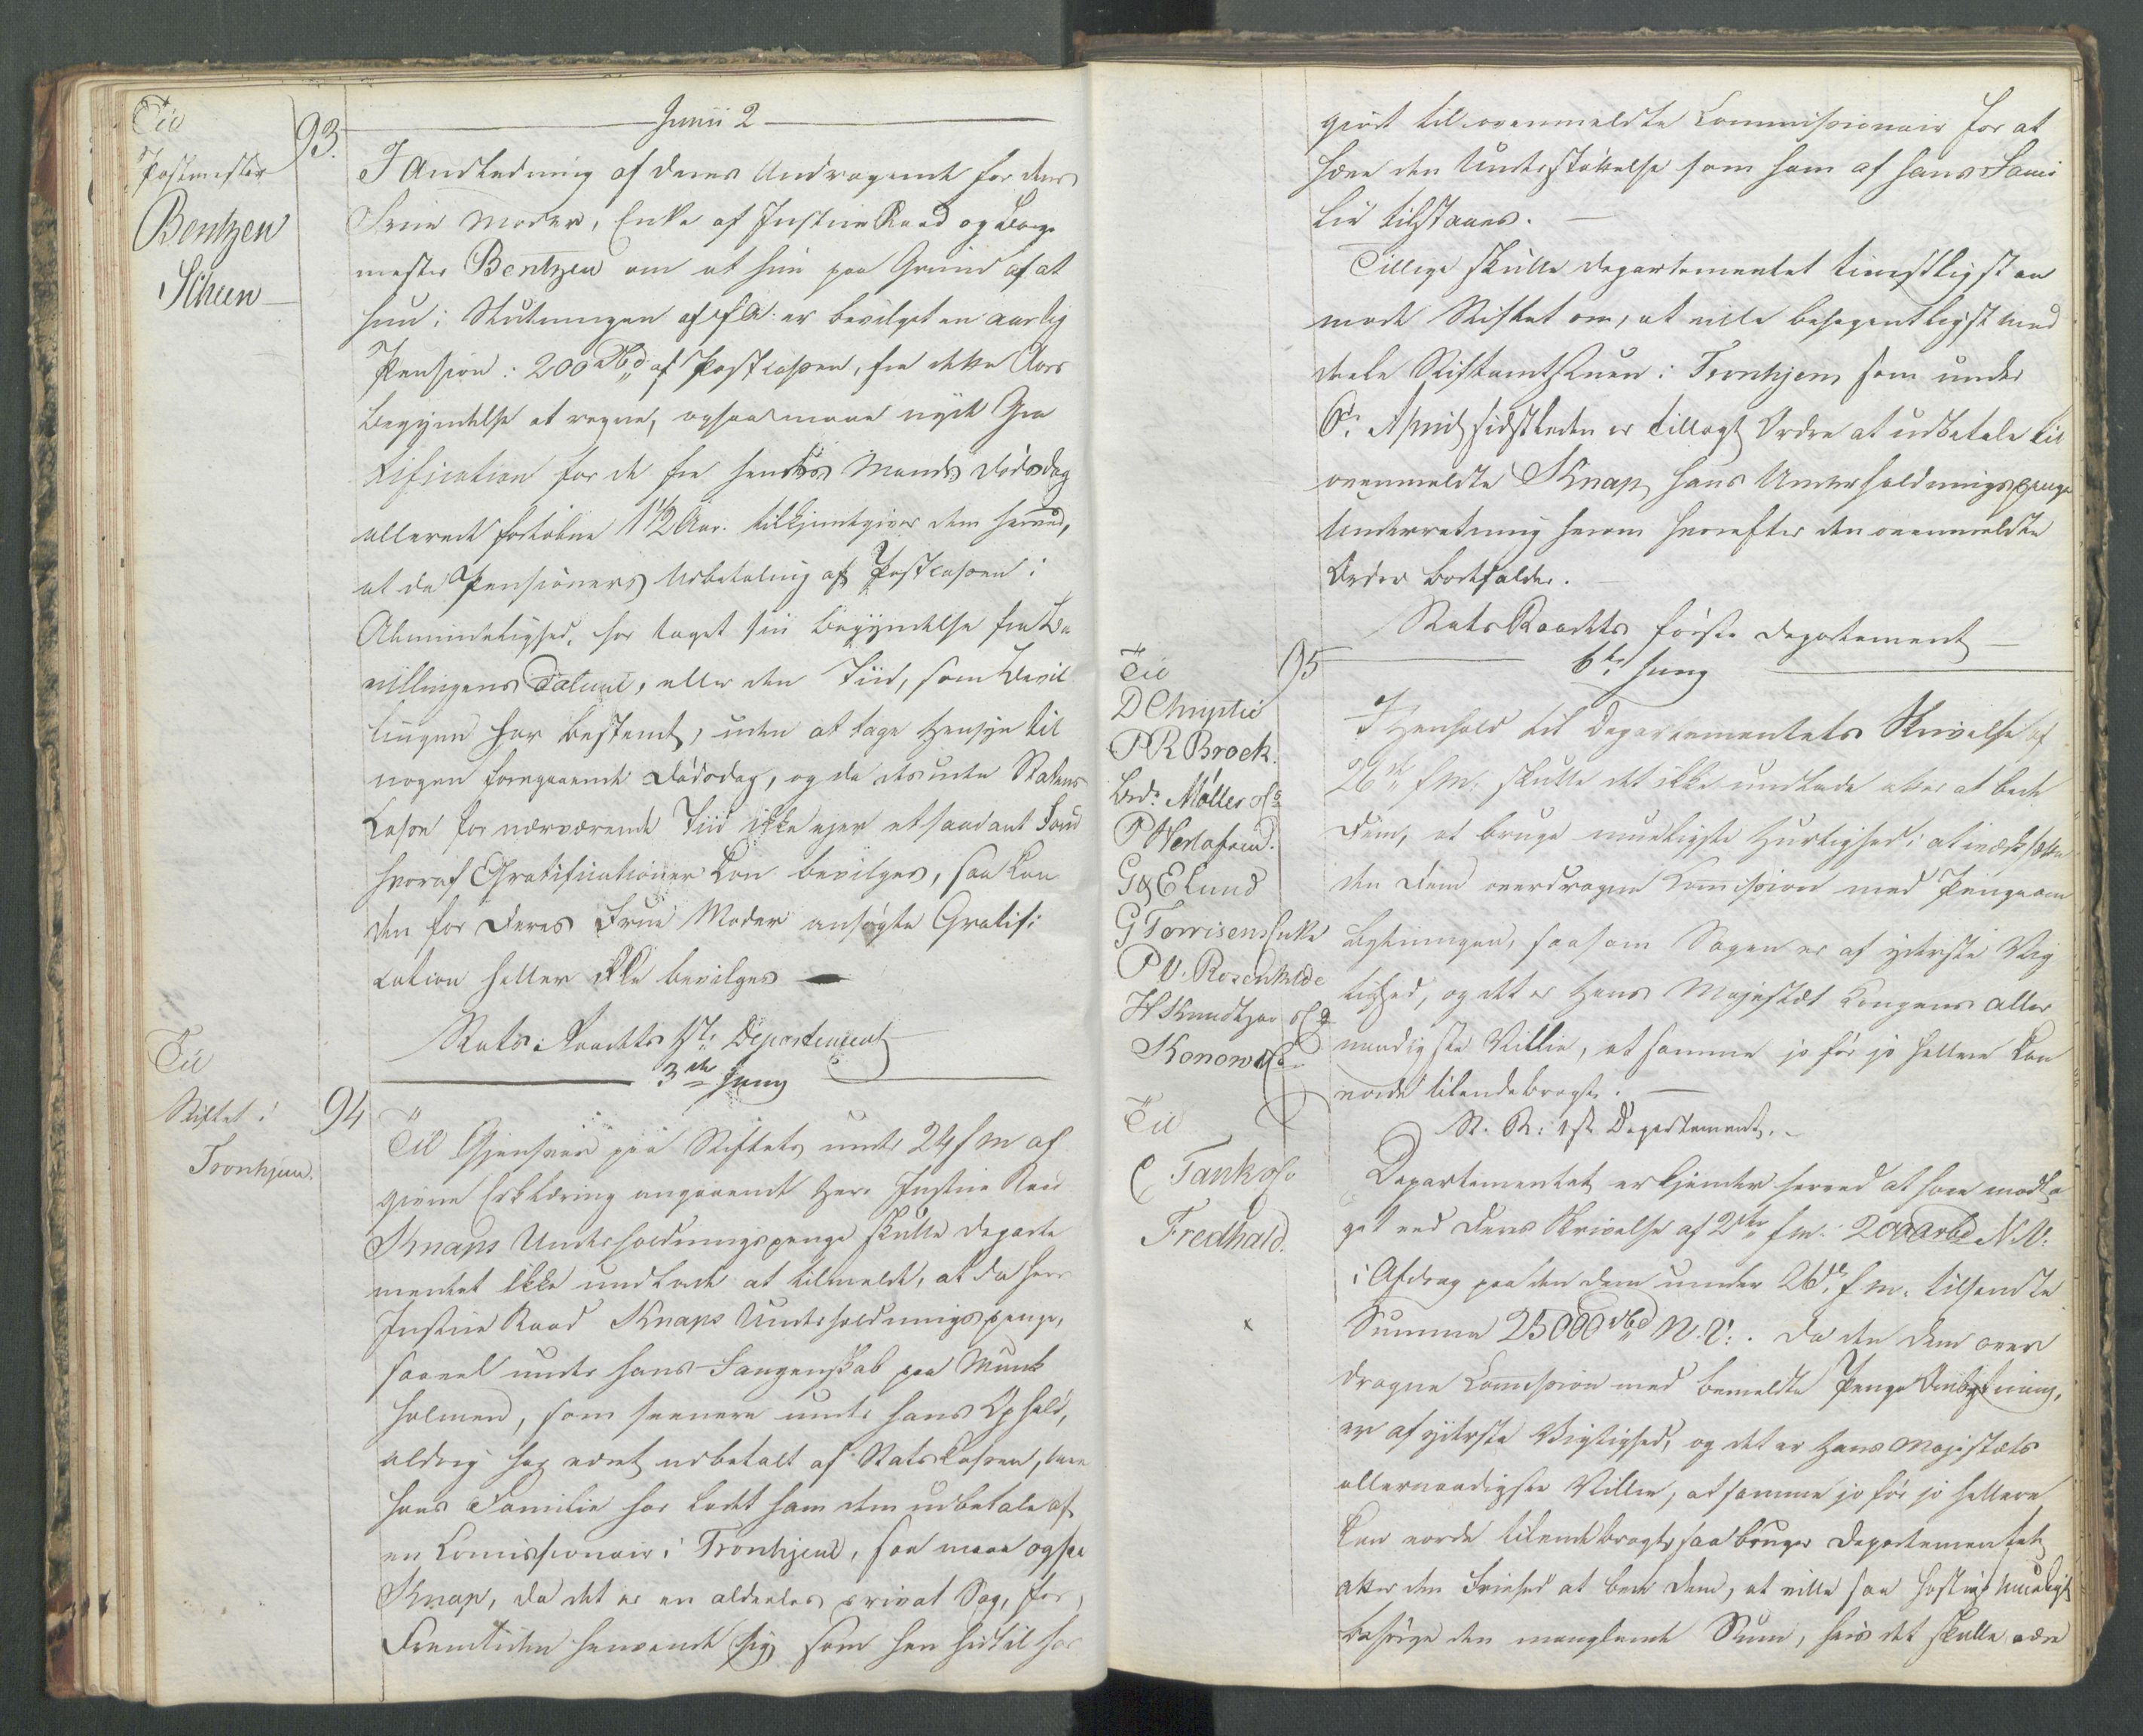 Til
Postmester
Bentzen
Scheen
93.
Junii 2
I Anledning af deres Andragende for deres
Frue Moder, Enke af Justice Raad og Borge
mester Bentzen om at hun paa Grund af at
hun i Slutningen af f. A. er bevilget en aarlig
Pension: 200 Rbd af Postcassen, fra dette Aars
Begyndelse at regne, ogsaa maae nyde Gra
tification for de fra hendes Mands Dødsdag
allerede forløbne 1 1/2 Aar. tilkjendegiver dem herved,
at da Pensioners Udbetaling af Postcassen i
Almindelighed, har taget sin Begyndelse fra Be
villingens Datum, eller den Tiid, som Bevil
lingen har bestemt, uden at tage Hensyn til
nogen foregaaende Dødsdag, og da desuden Statens
Casse for nærværende Tiid ikke ejer et saadant Fond
hvoraf Gratificationer kan bevilges, saa kan
den for Deres Frue Moder ansøgte Gratifi
cation heller ikke bevilges
Stats Raadets 1ste Departement
3die Juny
Til
Stiftet i
Tronhjem.
94
Til Gjensvar paa Stiftets under 24 f M af
givne Erklæring angaaende Herr Justice Raad
Knaps Underholdningspenge skulle Departe
mentet ikke undlade at tilmelde, at da Herr
Justice Raad Knaps Underholdningspenge,
saavel under hans Fangenskab paa Munk
holmen, som senere under hans Ophold,
aldrig har været udbetalt af Stats Cassen, men
hans Familie har ladet ham dem udbetale af
en Comissionair i Tronhjem, saa maae ogsaa
Knap, da det er en aldeles privat Sag, for
Fremtiden henvende sig som han hidtil har
giort til ovenmeldte Commissionair for at
have den Understøttelse som ham af hans Fami
lie tilstaaes.
Tillige skulle Departementet tienstligst an
mode Stiftet om, at ville behageligst med
deele Stiftamtstuen i Tronhjem som under
6te April sidstleden er tillagt Ordre at udbetale til
ovenmeldte Knap, hans Underholdningspenge
Underretning herom hvorefter den ovenmeldte
Ordre bortfalder.
Stats Raadets første Departement
6te Juny
Til
D Chrystie
P R Broch.
Brd. Møller & C
P Verlafsend.
G & E Lund
G Torrisens Enke
P V. Rosenkilde
H Knudtzon & C
Konow & C
95
I Henhold til Departementets Skrivelse af
26de f M. skulle det ikke undlade atter at bede
Dem, at bruge mueligste Hurtighed i at iværksætte
den Dem overdragne Commission med Pengeom
bytningen, saasom Sagen er af yderste Vig
tighed, og det er Hans Majestæt Kongens aller
naadigste Villie, at samme jo før jo hellere kan
vorde tilendebragt.
St. R. 1ste Departement.
Til
C Tank & C
Fredhald.
x
Departementet erkjender herved at have modta
get ved Deres Skrivelse af 2den f M. 2000 rbd N. V.
i Afdrag paa den dem under 26de f M. tilsendte
Summa 25000 rbd N. V. Da den dem over
dragne Commission med bemeldte Penge Ombytning,
er af yderste Vigtighed, og det er Hans Majestæts
allernaadigste Villie, at samme jo før jo hellere
kan vorde tilendebragt, saa bruger Departementet
atter den Frihed at bede Dem, at ville saa hastigt mueligt
besørge den manglende Sum, hvis det skulle være